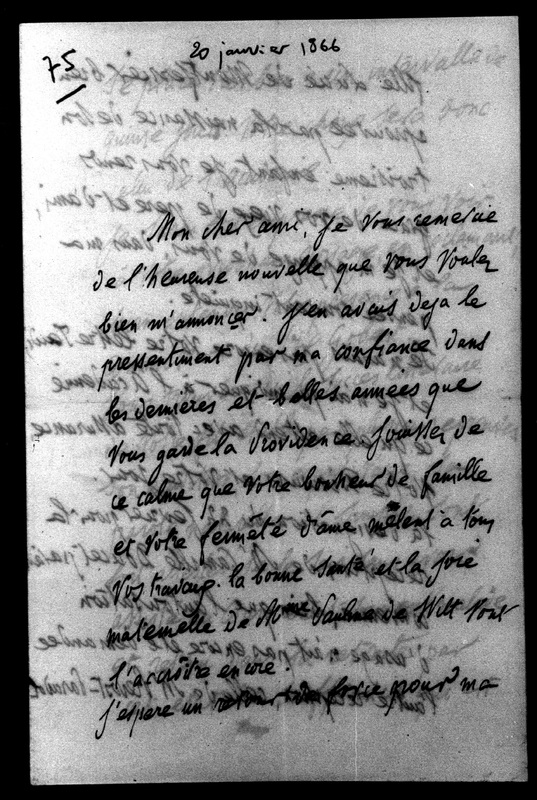 75
20 janvier 1866
Mon cher ami, je vous remercie
de l'heureuse nouvelle que vous voulez
bien m'annoncer. J'en avais deja le
pressentiment par ma confiance dans
les dernières et belles années que
vous garde la Providence. Jouissez de
ce calme que votre bonheur de famille
et votre fermeté d'âme mêlent à tous
vos travaux. la bonne santé et la joie
maternelle de Mme Pauline de Witt vont
l'accroître encore.
J'espere un retour de force pour ma